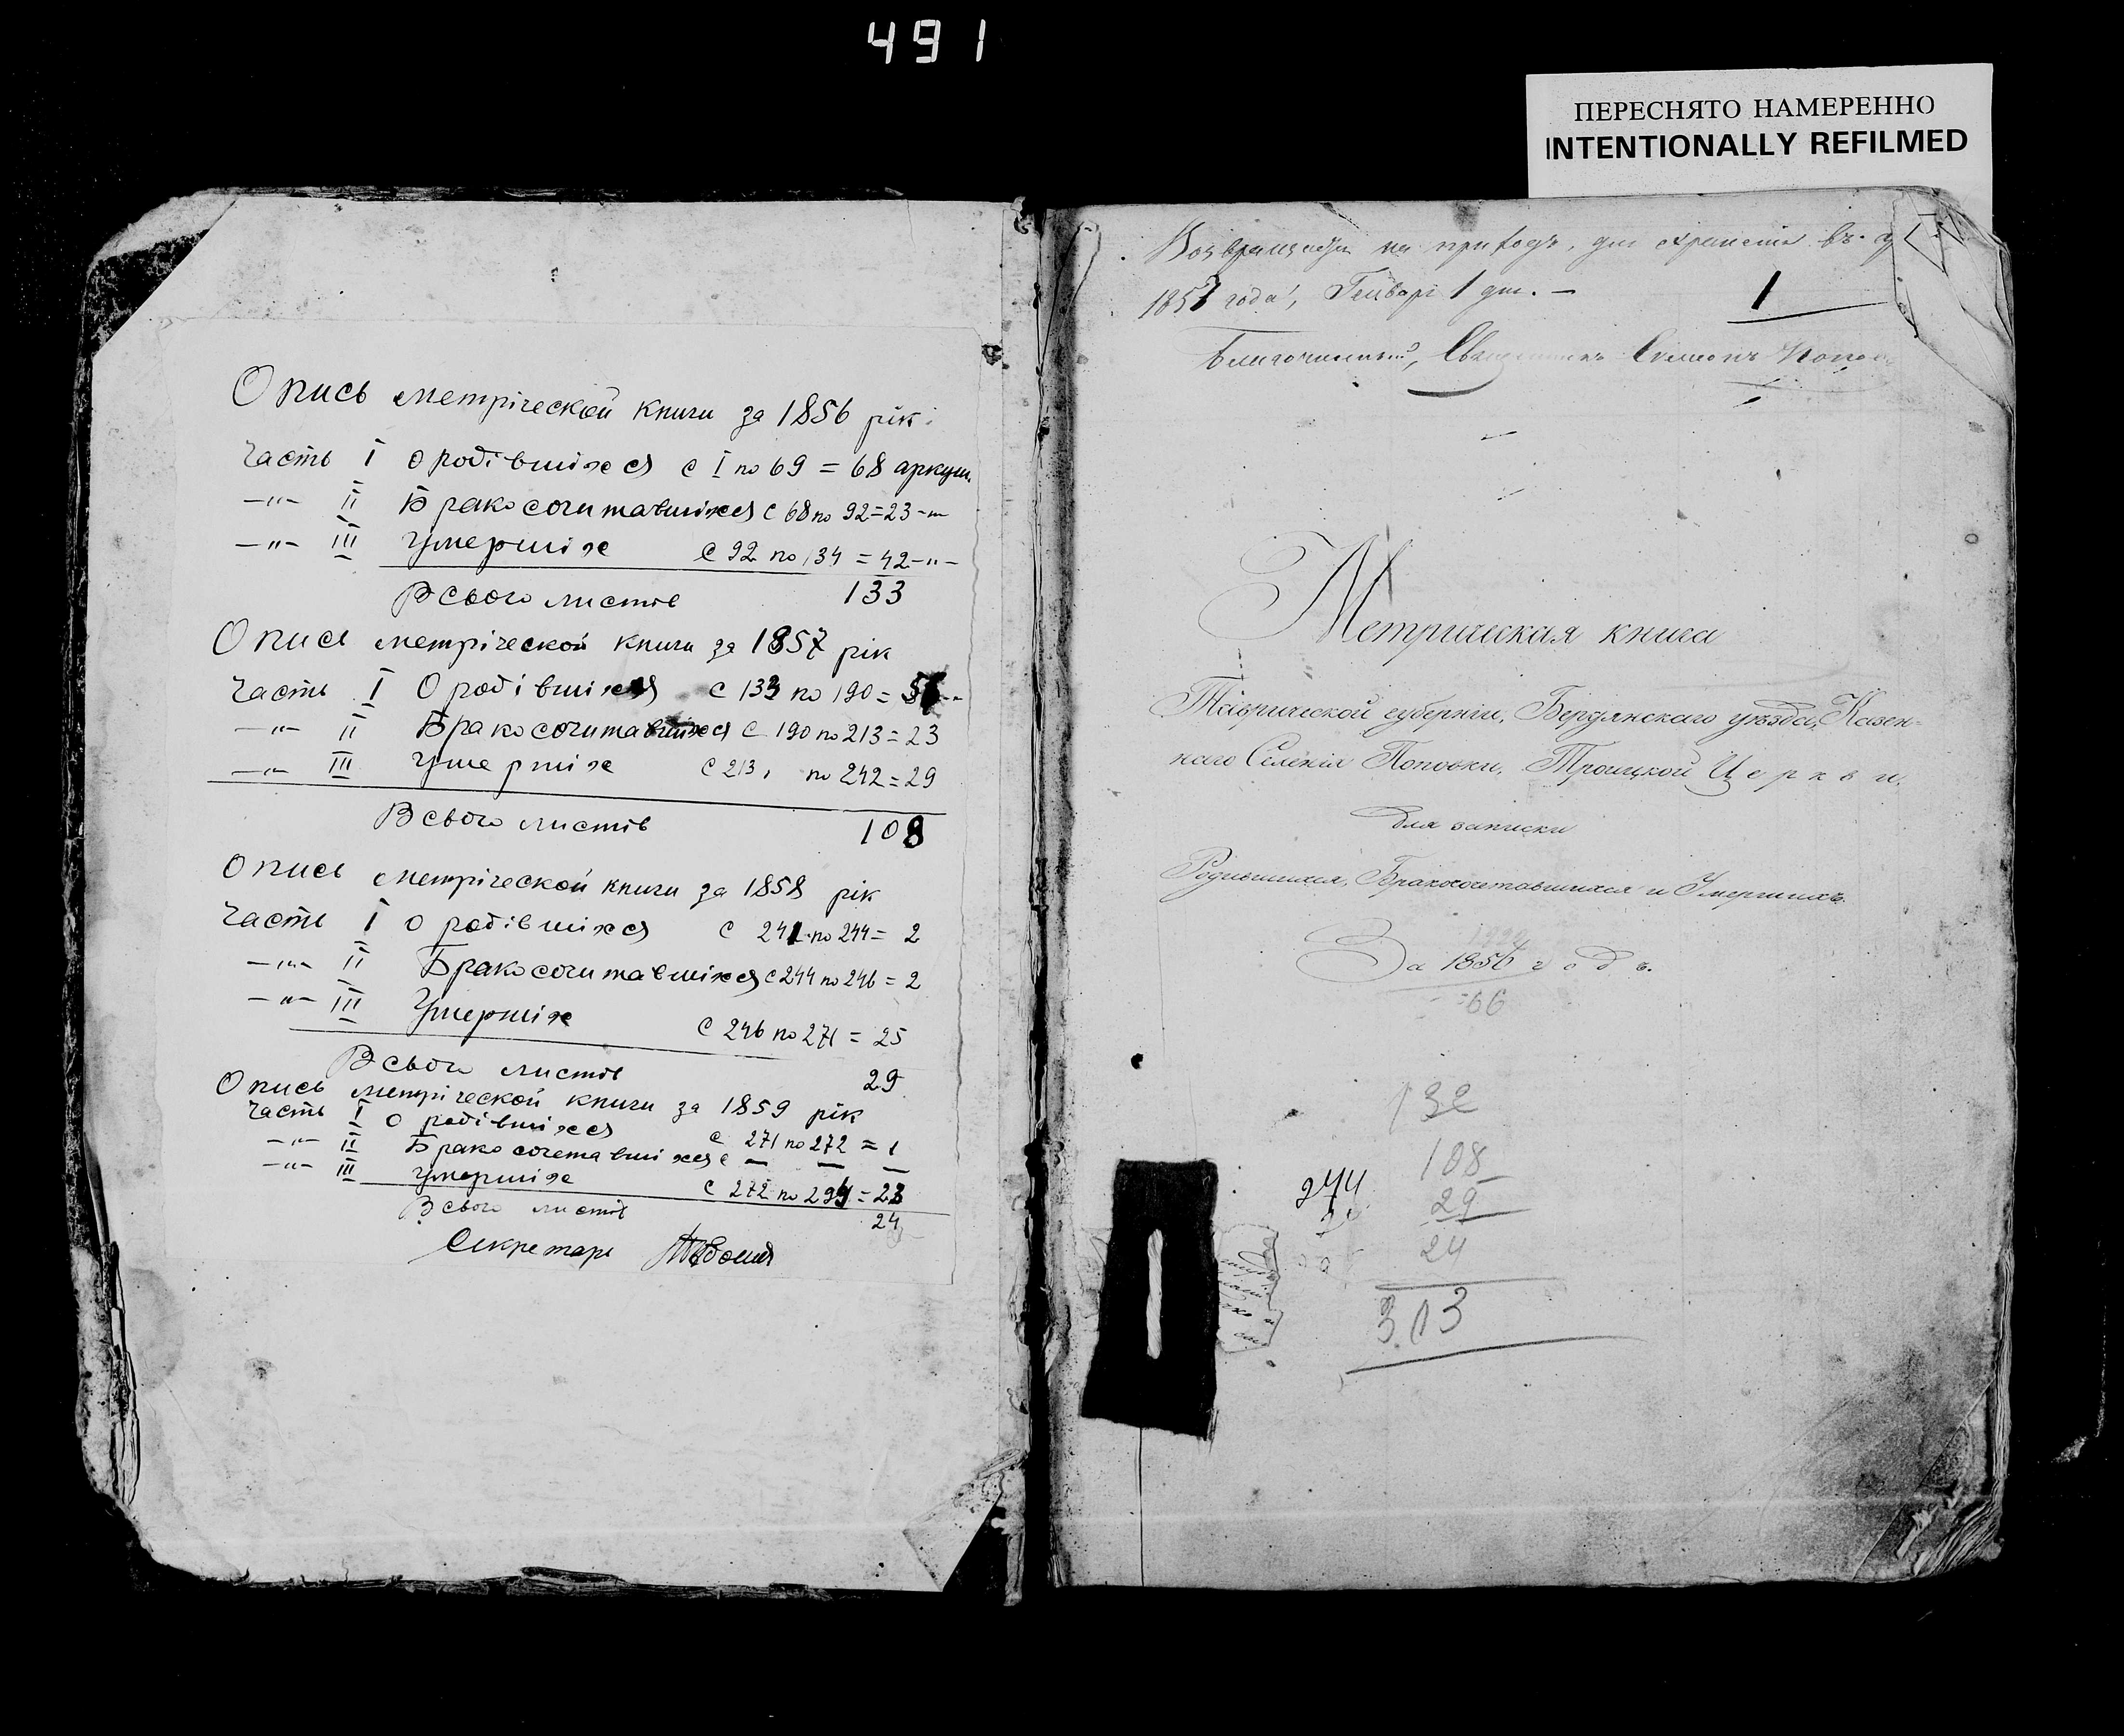 491
ПЕРЕСНЯТО НАМЕРЕННО
INTENTIONALLY REFILMED
Опись метріческой книги за 1856 рік:
Часть I о родівшіхся с I по 69 = 68 аркуш.
—"— II Бракосочитавшіхся с 68 по 92 = 23 —"—
—"— III Умершіх с 92 по 134 = 42 —"—
Всього листів 133
Опись метріческой книги за 1857 рік
Часть I О родівшіхся с 133 по 190 =
—"— II Бракосочитавшіхся с 190 по 213 = 23
—"— III Умершіх с 213, по 242 = 29
Всього листів 108
Опись метріческой книги за 1858 рік
Часть I о родівшіхся с 242 по 244 = 2
—"— II Бракосочитавшіхся с 244 по 246 = 2
—"— III Умершіх с 246 по 271 = 25
Всього листів 29
Опись метріческой книги за 1859 рік
Часть I о родівшіхся с 271 по 272 = 1
—"— II Бракосочетавшіхся с — — —
—"— III Умершіх с 272 по 294 = 23
Всього листів 24
Секретарь
Возвращается на приходъ, для храненія въ
1857 года, Генваря 1 дня. —
1
Благочинный, Священникъ Симеонъ Попо
Метрическая книга
Таврической губерніи, Бердянскаго уѣзда, Казен-
наго Селенія Поповки, Троицкой Церкви,
Для записки
Родившихся, Бракосочетавшихся и Умершихъ.
За 1856 годъ.
66
132
108
244
29
24
303